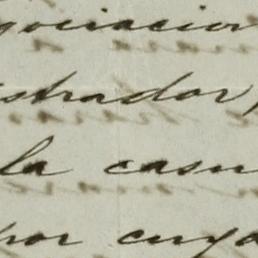 gociacion
strador,
la casu
por cuya